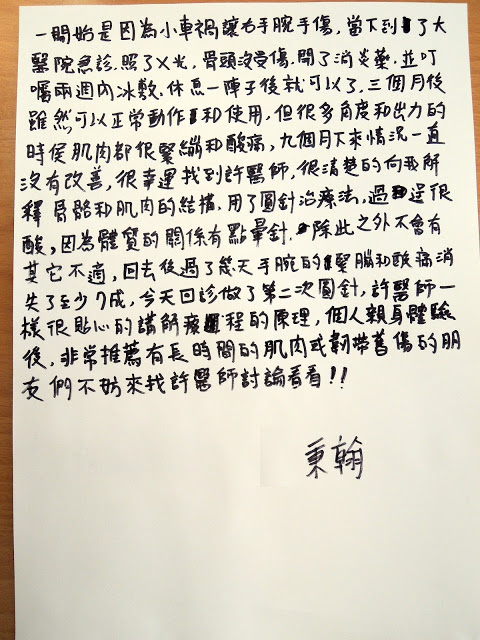 一開始是因為小車禍讓右手腕手傷，當下到了大
醫院急診．照了X光，骨頭沒受傷．開了消炎藥．並叮
囑兩週內冰敷．休息一陣子後就可以了，三個月後
雖然可以正常動作和使用，但很多角度和出力的
時侯肌肉都很緊繃和酸痛，九個月下來情況一直
沒有改善，很幸運找到許醫師，很清楚的向我解
釋骨骼和肌肉的結構．用了圓針治療法，過程很
酸，因為體質的關係有點暈針．除此之外不會有
其它不適，回去後過了幾天手腕的緊繃和酸痛消
失了至少7成，今天回診做了第二次圓針，許醫師一
樣很貼心的講解療程的原理，個人親身體驗
後，非常推薦有長時間的肌肉或韌帶舊傷的朋
友們不妨來找許醫師討論看看！！
秉翰